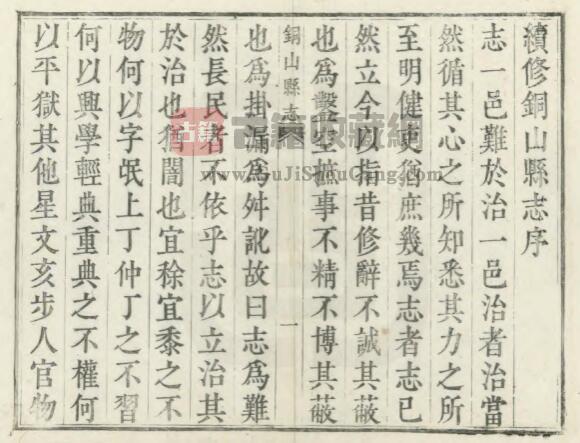 續修銅山縣志序
志一邑難於治一邑治者治當
然循其心之所知悉其力之所
至明健吏猶庶幾焉志者志已
然立今以指昔修辭不誠其蔽
也為鑿空摭事不精不博其蔽
銅山縣志
一
也為掛漏為舛訛故曰志為難
然長民者不依乎志以立治其
於治也猶闇也宜稌宜黍之不
物何以字氓上丁仲丁之不習
何以興學輕典重典之不權何
以平獄其他星文亥步人官物
古籍收藏網
www.GuJiShouCang.com